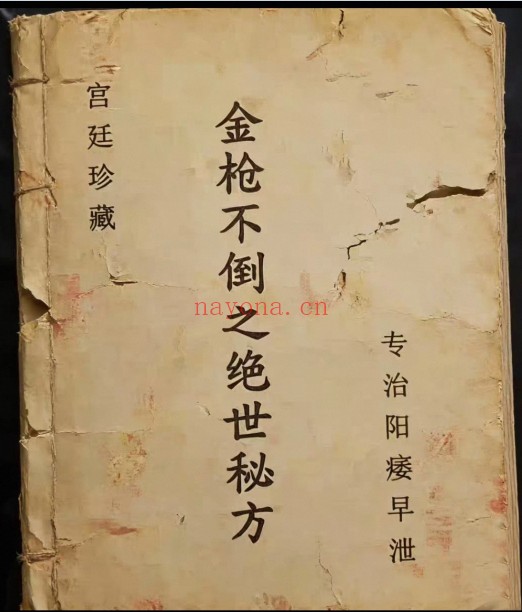 宫廷珍藏
金枪不倒之绝世秘方
专治阳痿早泄
nayona.cn